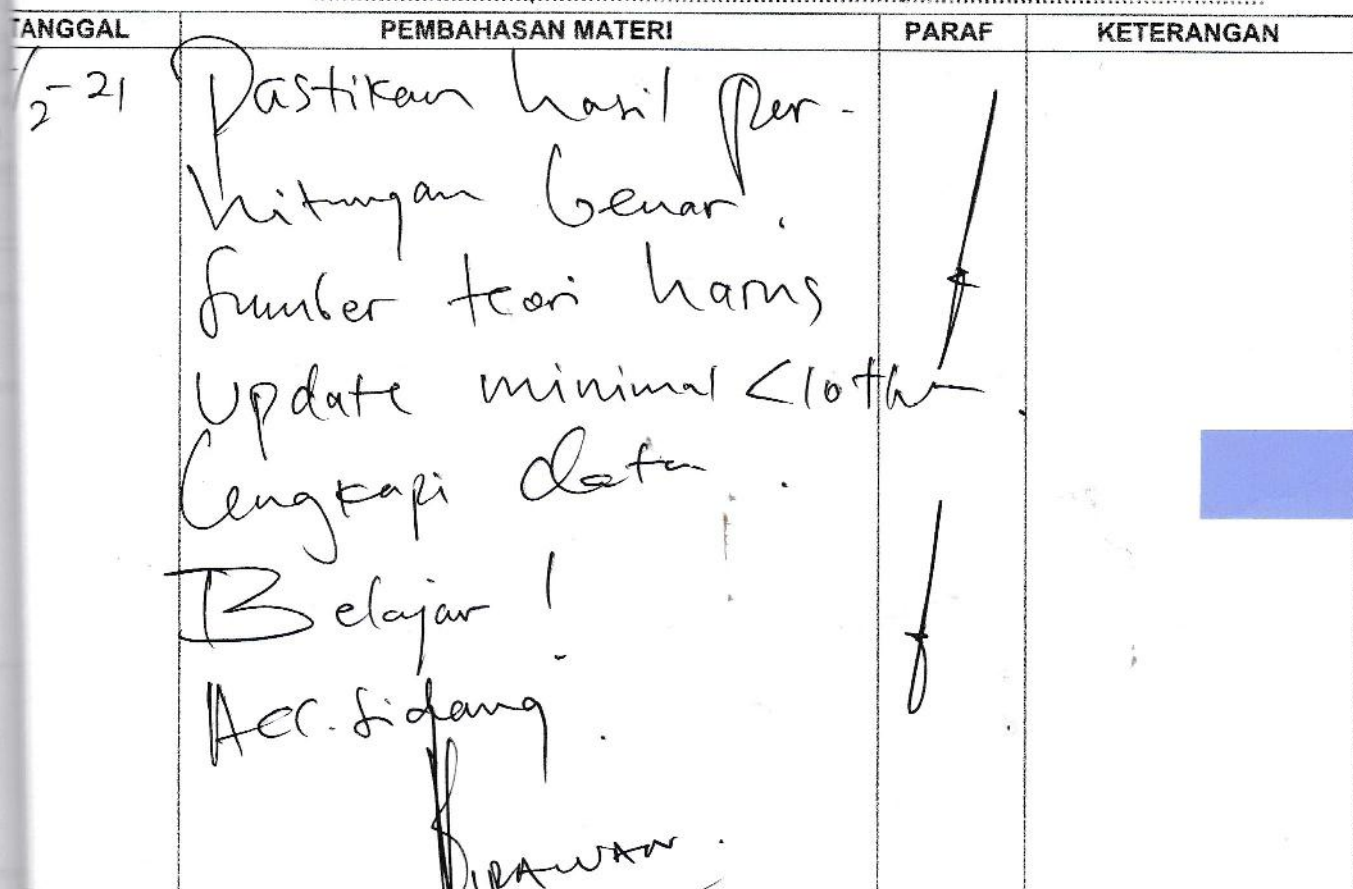 TANGGAL PEMBAHASAN MATERI PARAF KETERANGAN
2-21 Pastikan hasil per-
hitungan benar.
Sumber teori harus
Update minimal <10th
Lengkapi data.
Belajar!
Acc. Sidang